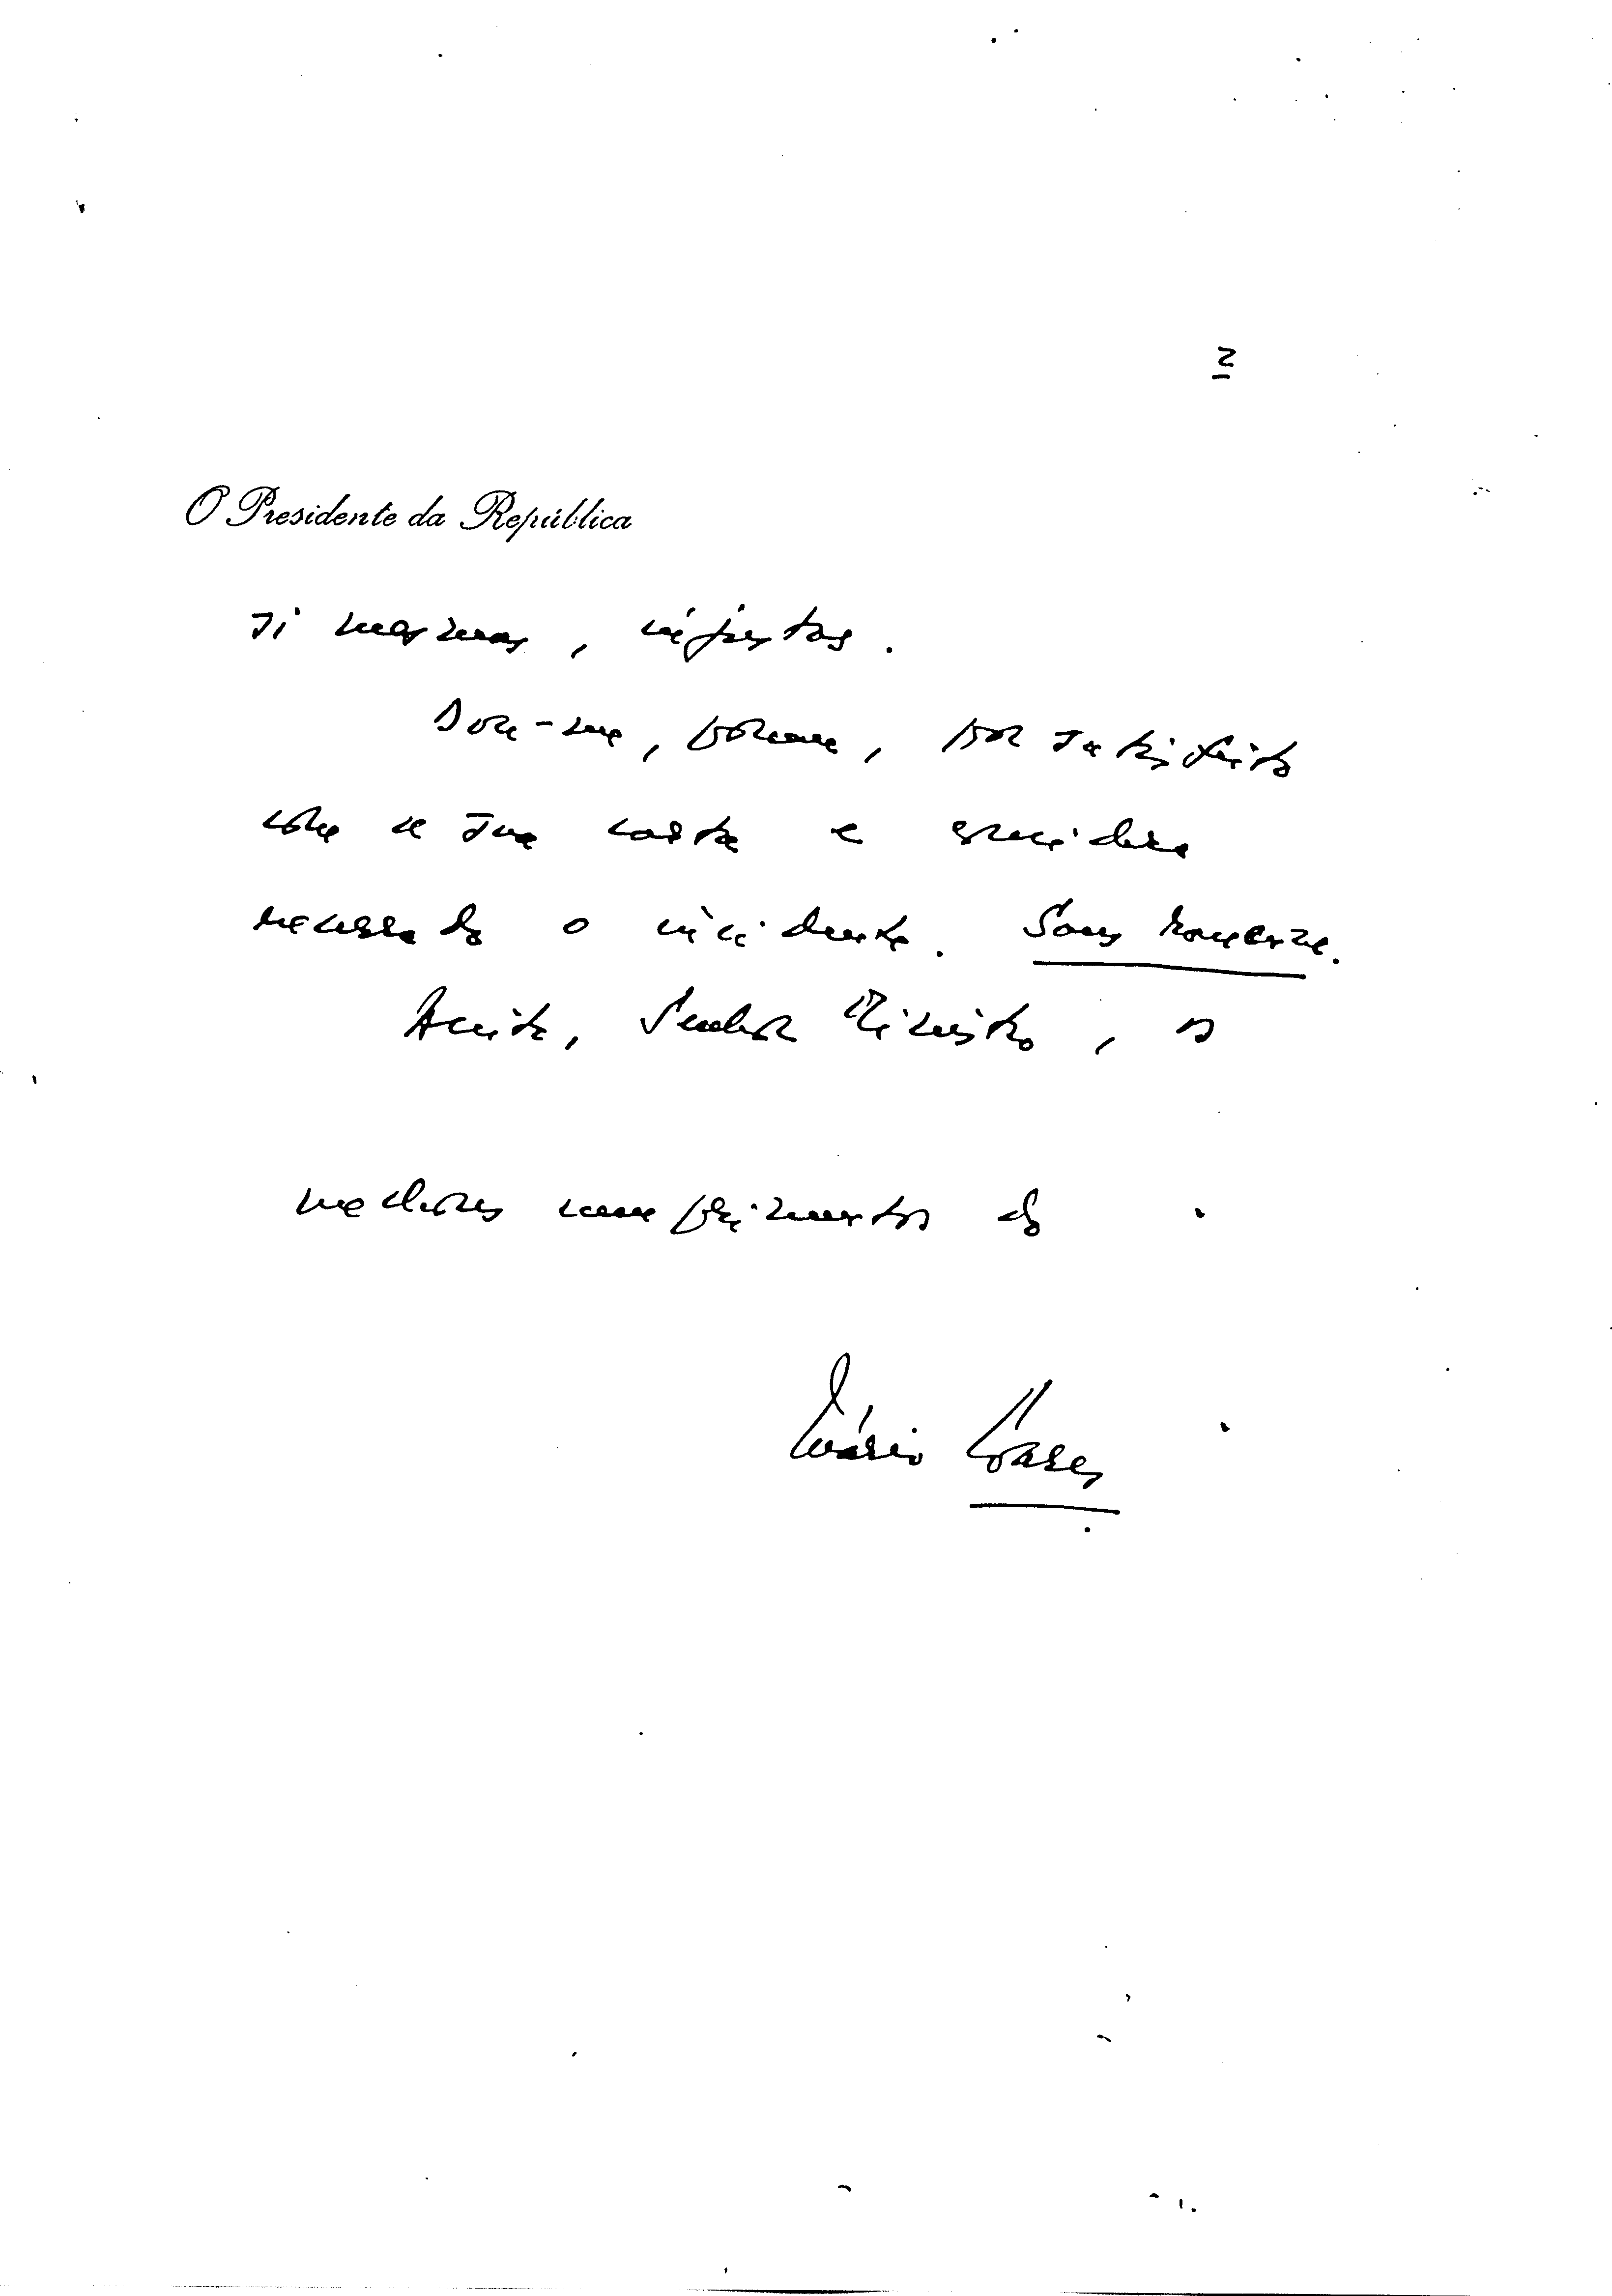 2
O Presidente da República
si mesmas, injustas.
Dou-me, porém, por satisfeito
com a sua carta e considero
encerrado o incidente. Sans rancune.
Aceite, Senhor Ministro, os
melhores cumprimentos do
Mário Soares